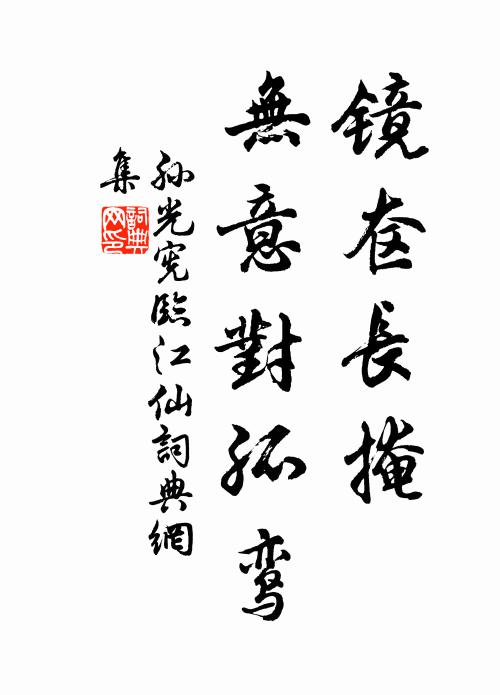 镜奁長掩
無意對孤鸾
孙光宪臨江仙詞典網
集
詞典
网印